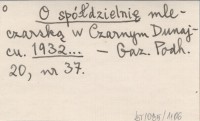 O spółdzielnię mle-
czarską w Czarnym Dunaj-
cu. 1932... — Gaz. Podh.
20, nr 37.